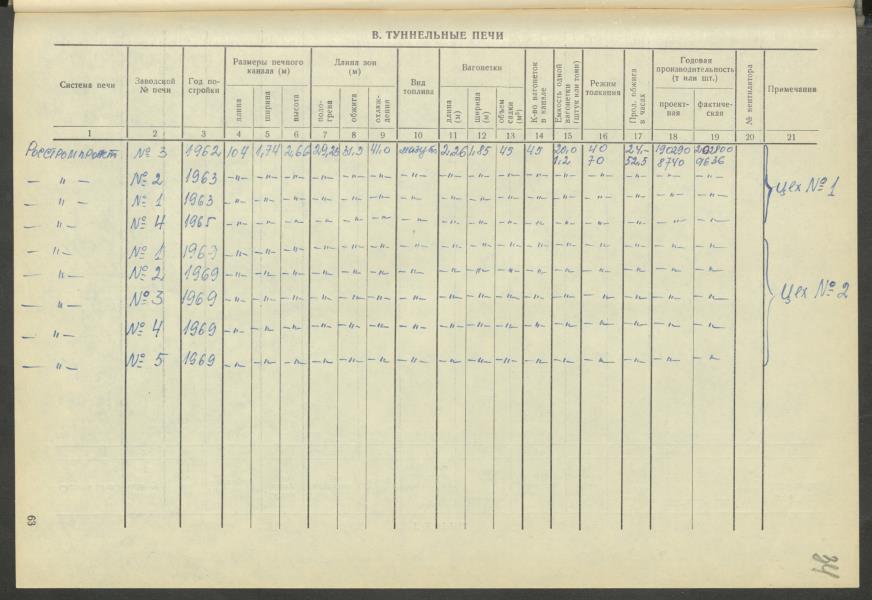 В. ТУННЕЛЬНЫЕ ПЕЧИ
Система печи Заводской № печи Год постройки Размеры печного канала (м) Длина зон (м) Вид топлива Вагонетки К-во вагонеток в канале Емкость одной вагонетки (штук или тонн) Режим толкания Прод. обжига в часах Годовая производительность (т или шт.) № вентилятора Примечания
длина ширина высота подогрева обжига охлаждения длина (м) ширина (м) объем садки (м³) проектная фактическая
1 2 3 4 5 6 7 8 9 10 11 12 13 14 15 16 17 18 19 20 21
№ 3 1962 104 1,74 2,66 29,25 31,2 41,0 мазут 2,26 1,85 45 45 20,0 40 24,- 190290 202800
1,2 70 52,5 8740 9636
— " — № 2 1963 —"— —"— —"— —"— —"— —"— —"— —"— —"— —"— —"— —"— —"— —"— —"— —"—
— " — № 1 1963 —"— —"— —"— —"— —"— —"— —"— —"— —"— —"— —"— —"— —"— —"— —"— —"— Цех № 1
— " — № 4 1965 —"— —"— —"— —"— —"— —"— —"— —"— —"— —"— —"— —"— —"— —"— —"— —"—
— " — № 1 1963 —"— —"— —"— —"— —"— —"— —"— —"— —"— —"— —"— —"— —"— —"— —"— —"—
— " — № 2 1969 —"— —"— —"— —"— —"— —"— —"— —"— —"— —"— —"— —"— —"— —"— —"— —"—
— " — № 3 1969 —"— —"— —"— —"— —"— —"— —"— —"— —"— —"— —"— —"— —"— —"— —"— —"— Цех № 2
— " — № 4 1969 —"— —"— —"— —"— —"— —"— —"— —"— —"— —"— —"— —"— —"— —"— —"— —"—
— " — № 5 1969 —"— —"— —"— —"— —"— —"— —"— —"— —"— —"— —"— —"— —"— —"— —"— —"—
63